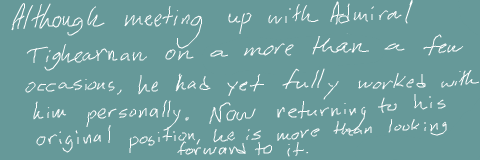 Although meeting up with Admiral
Tighearnan on a more than a few
occasions, he had yet fully worked with
him personally. Now returning to his
original position, he is more than looking
forward to it.